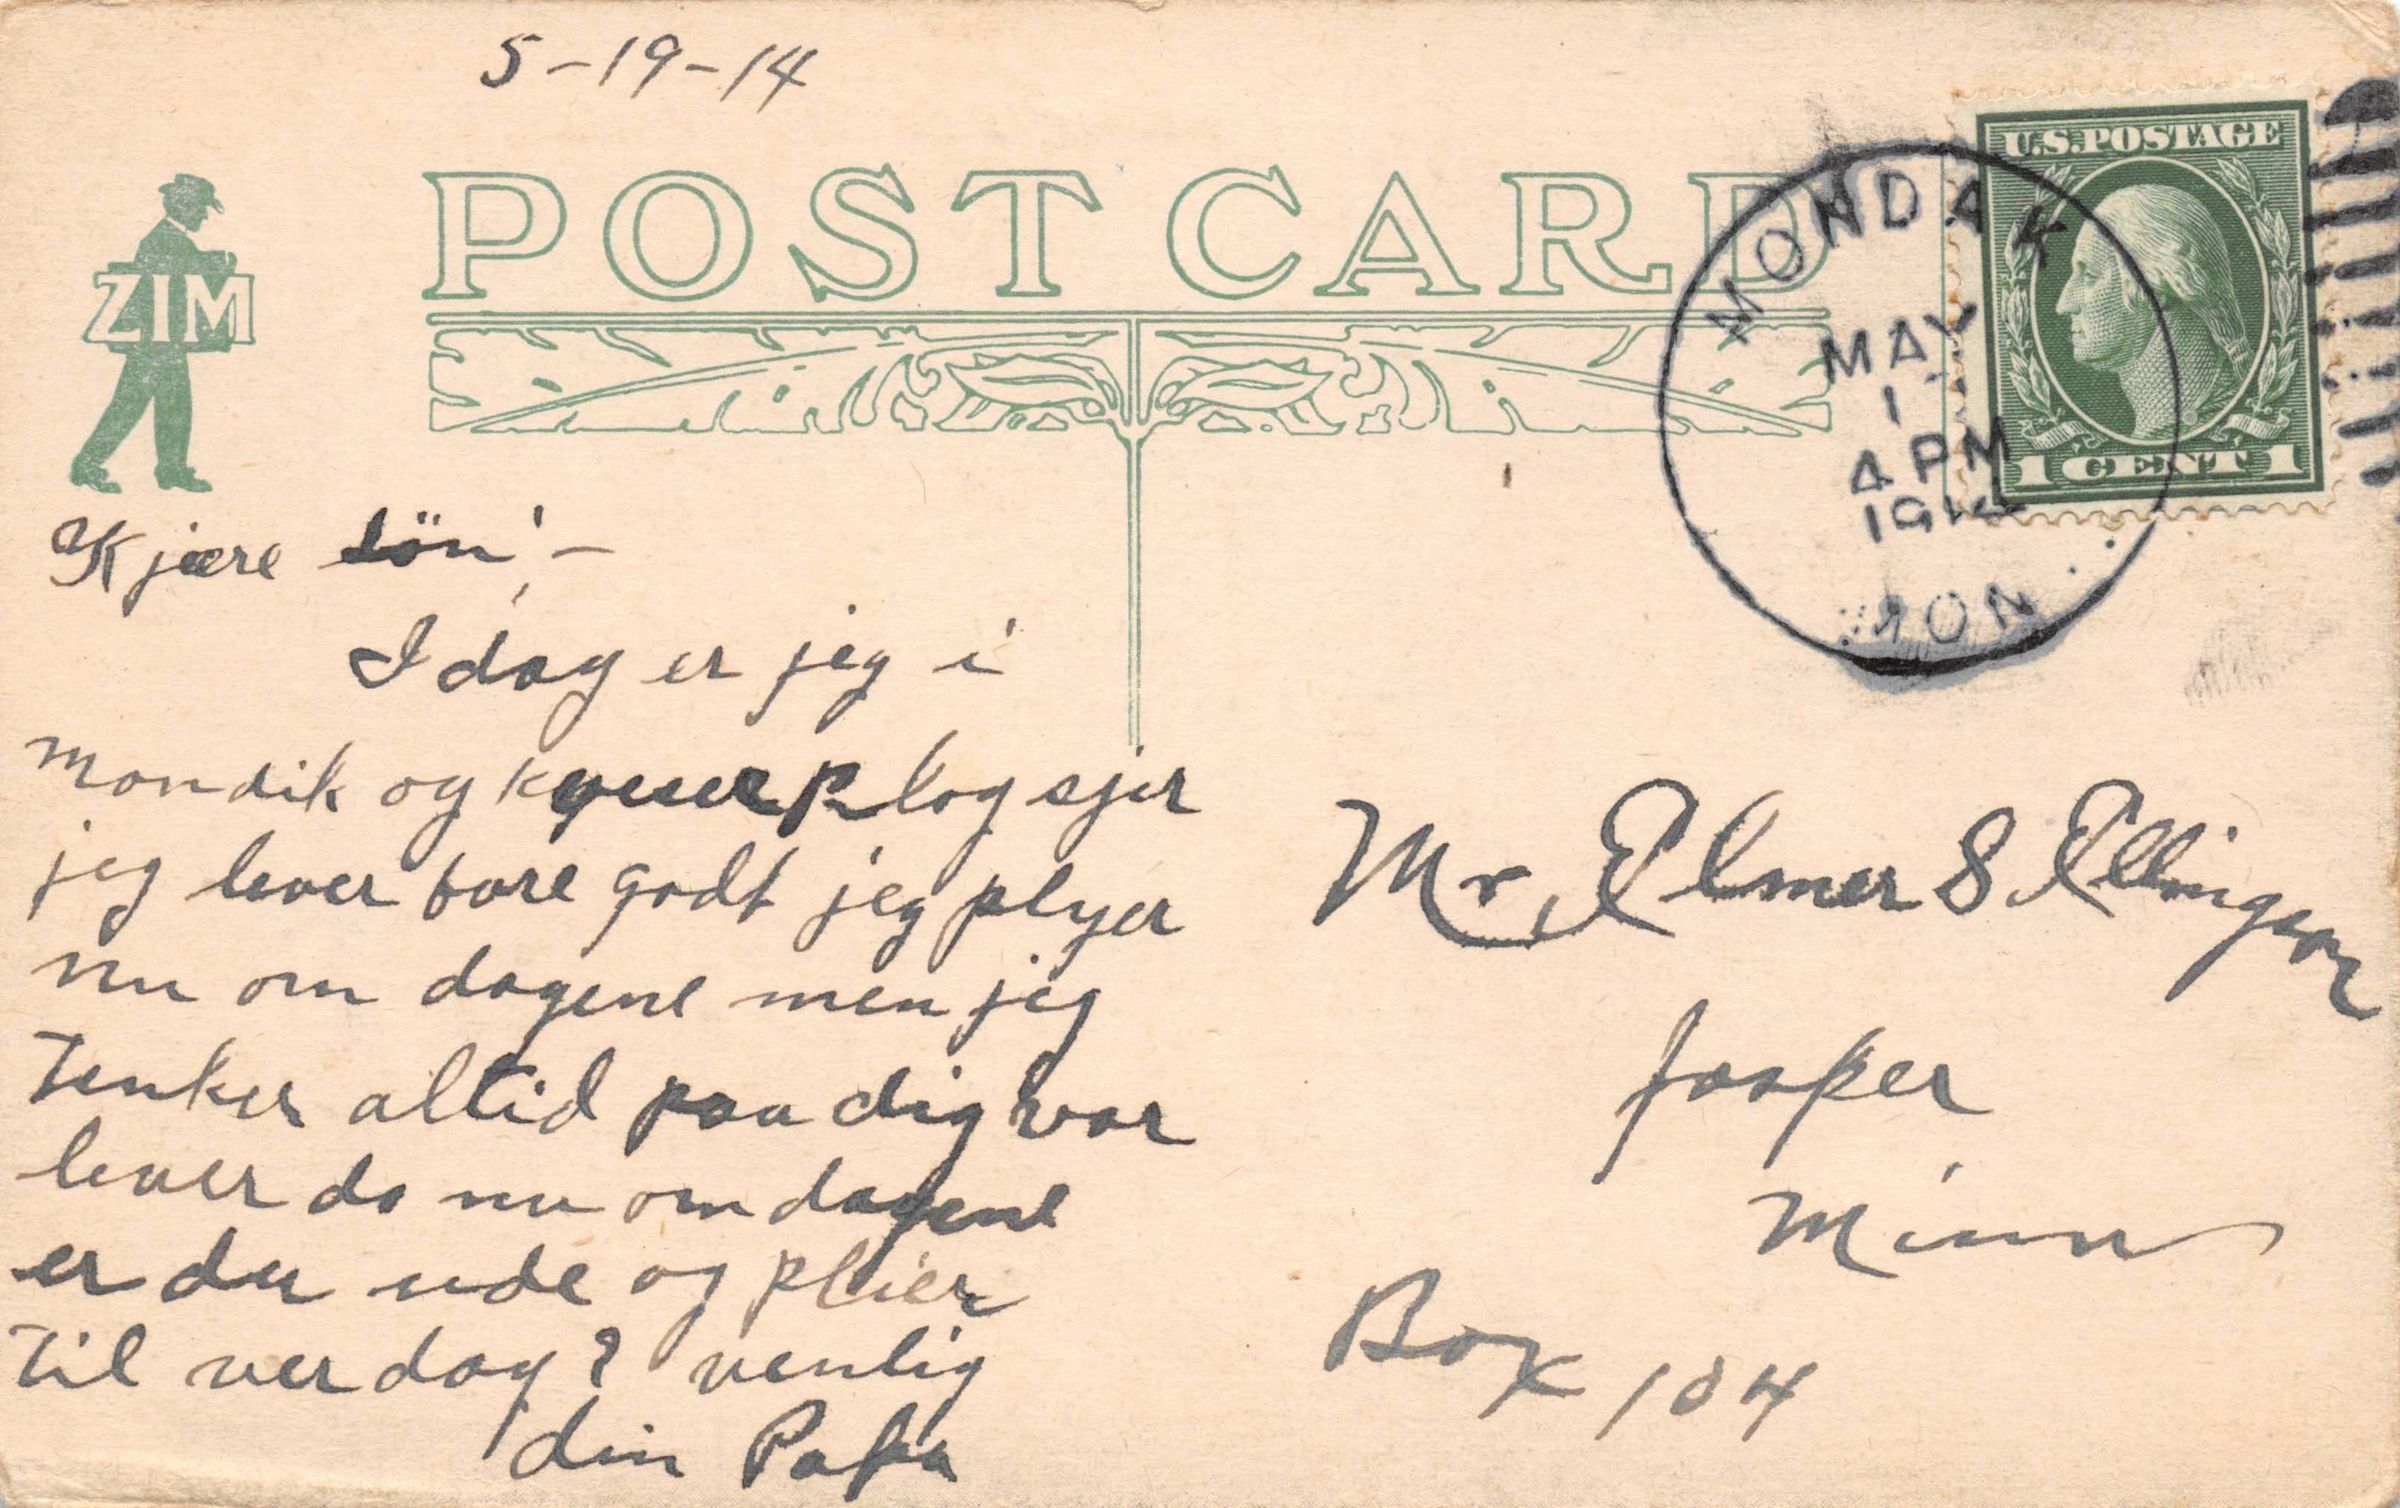 5-19-14
ZIM
POST CARD
U.S.POSTAGE
1 CENT 1
MONDAK
MAY
4 PM
1914
MON
Kjære sön! –
I dag er jeg i
Mondik og kjøper plog sjer
jeg lever bare godt jeg plyer
nu om dagene men jeg
Tenker altid paa dig vor
lever do nu om dagene
er du ude og plier
til ver dag? venlig
din Papa
Mr, Elmer S Ellingson
Jasper
Minn
Box 104